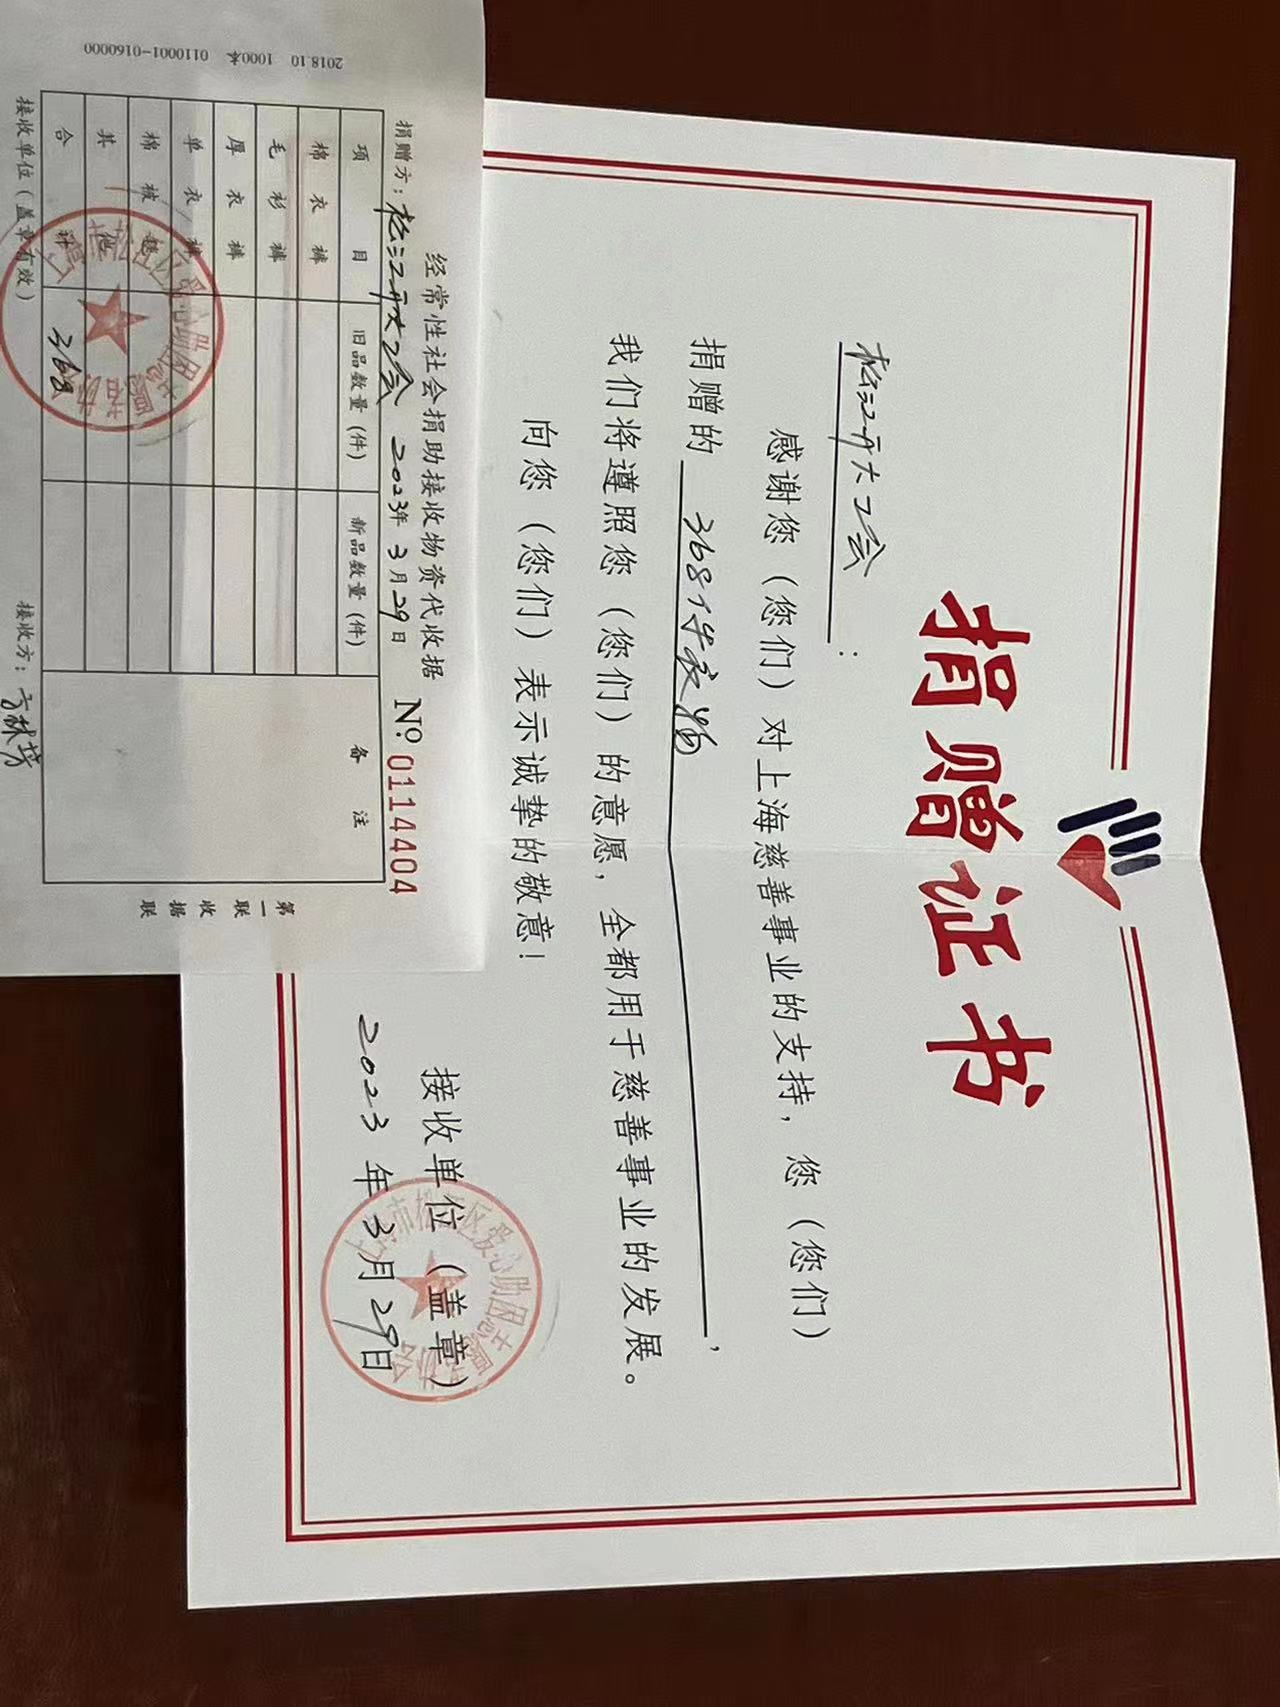 捐赠证书
松江开大工会：
感谢您（您们）对上海慈善事业的支持，您（您们）
捐赠的 368件衣物，
我们将遵照您（您们）的意愿，全都用于慈善事业的发展。
向您（您们）表示诚挚的敬意！
接收单位（盖章）
2023年3月29日
上海市松江区爱心助困志愿者协会
经常性社会捐助接收物资代收据
捐赠方：松江开大工会 2023年3月29日 №0114404
项目 旧品数量（件） 新品数量（件） 备注
棉衣裤
毛衫裤
厚衣裤
单衣裤
棉被毯
其他
合计 368
接收单位（盖章有效） 接收方：
上海市松江区爱心助困志愿者协会
第一联 收据联
2018.10 1000本 0110001-0160000